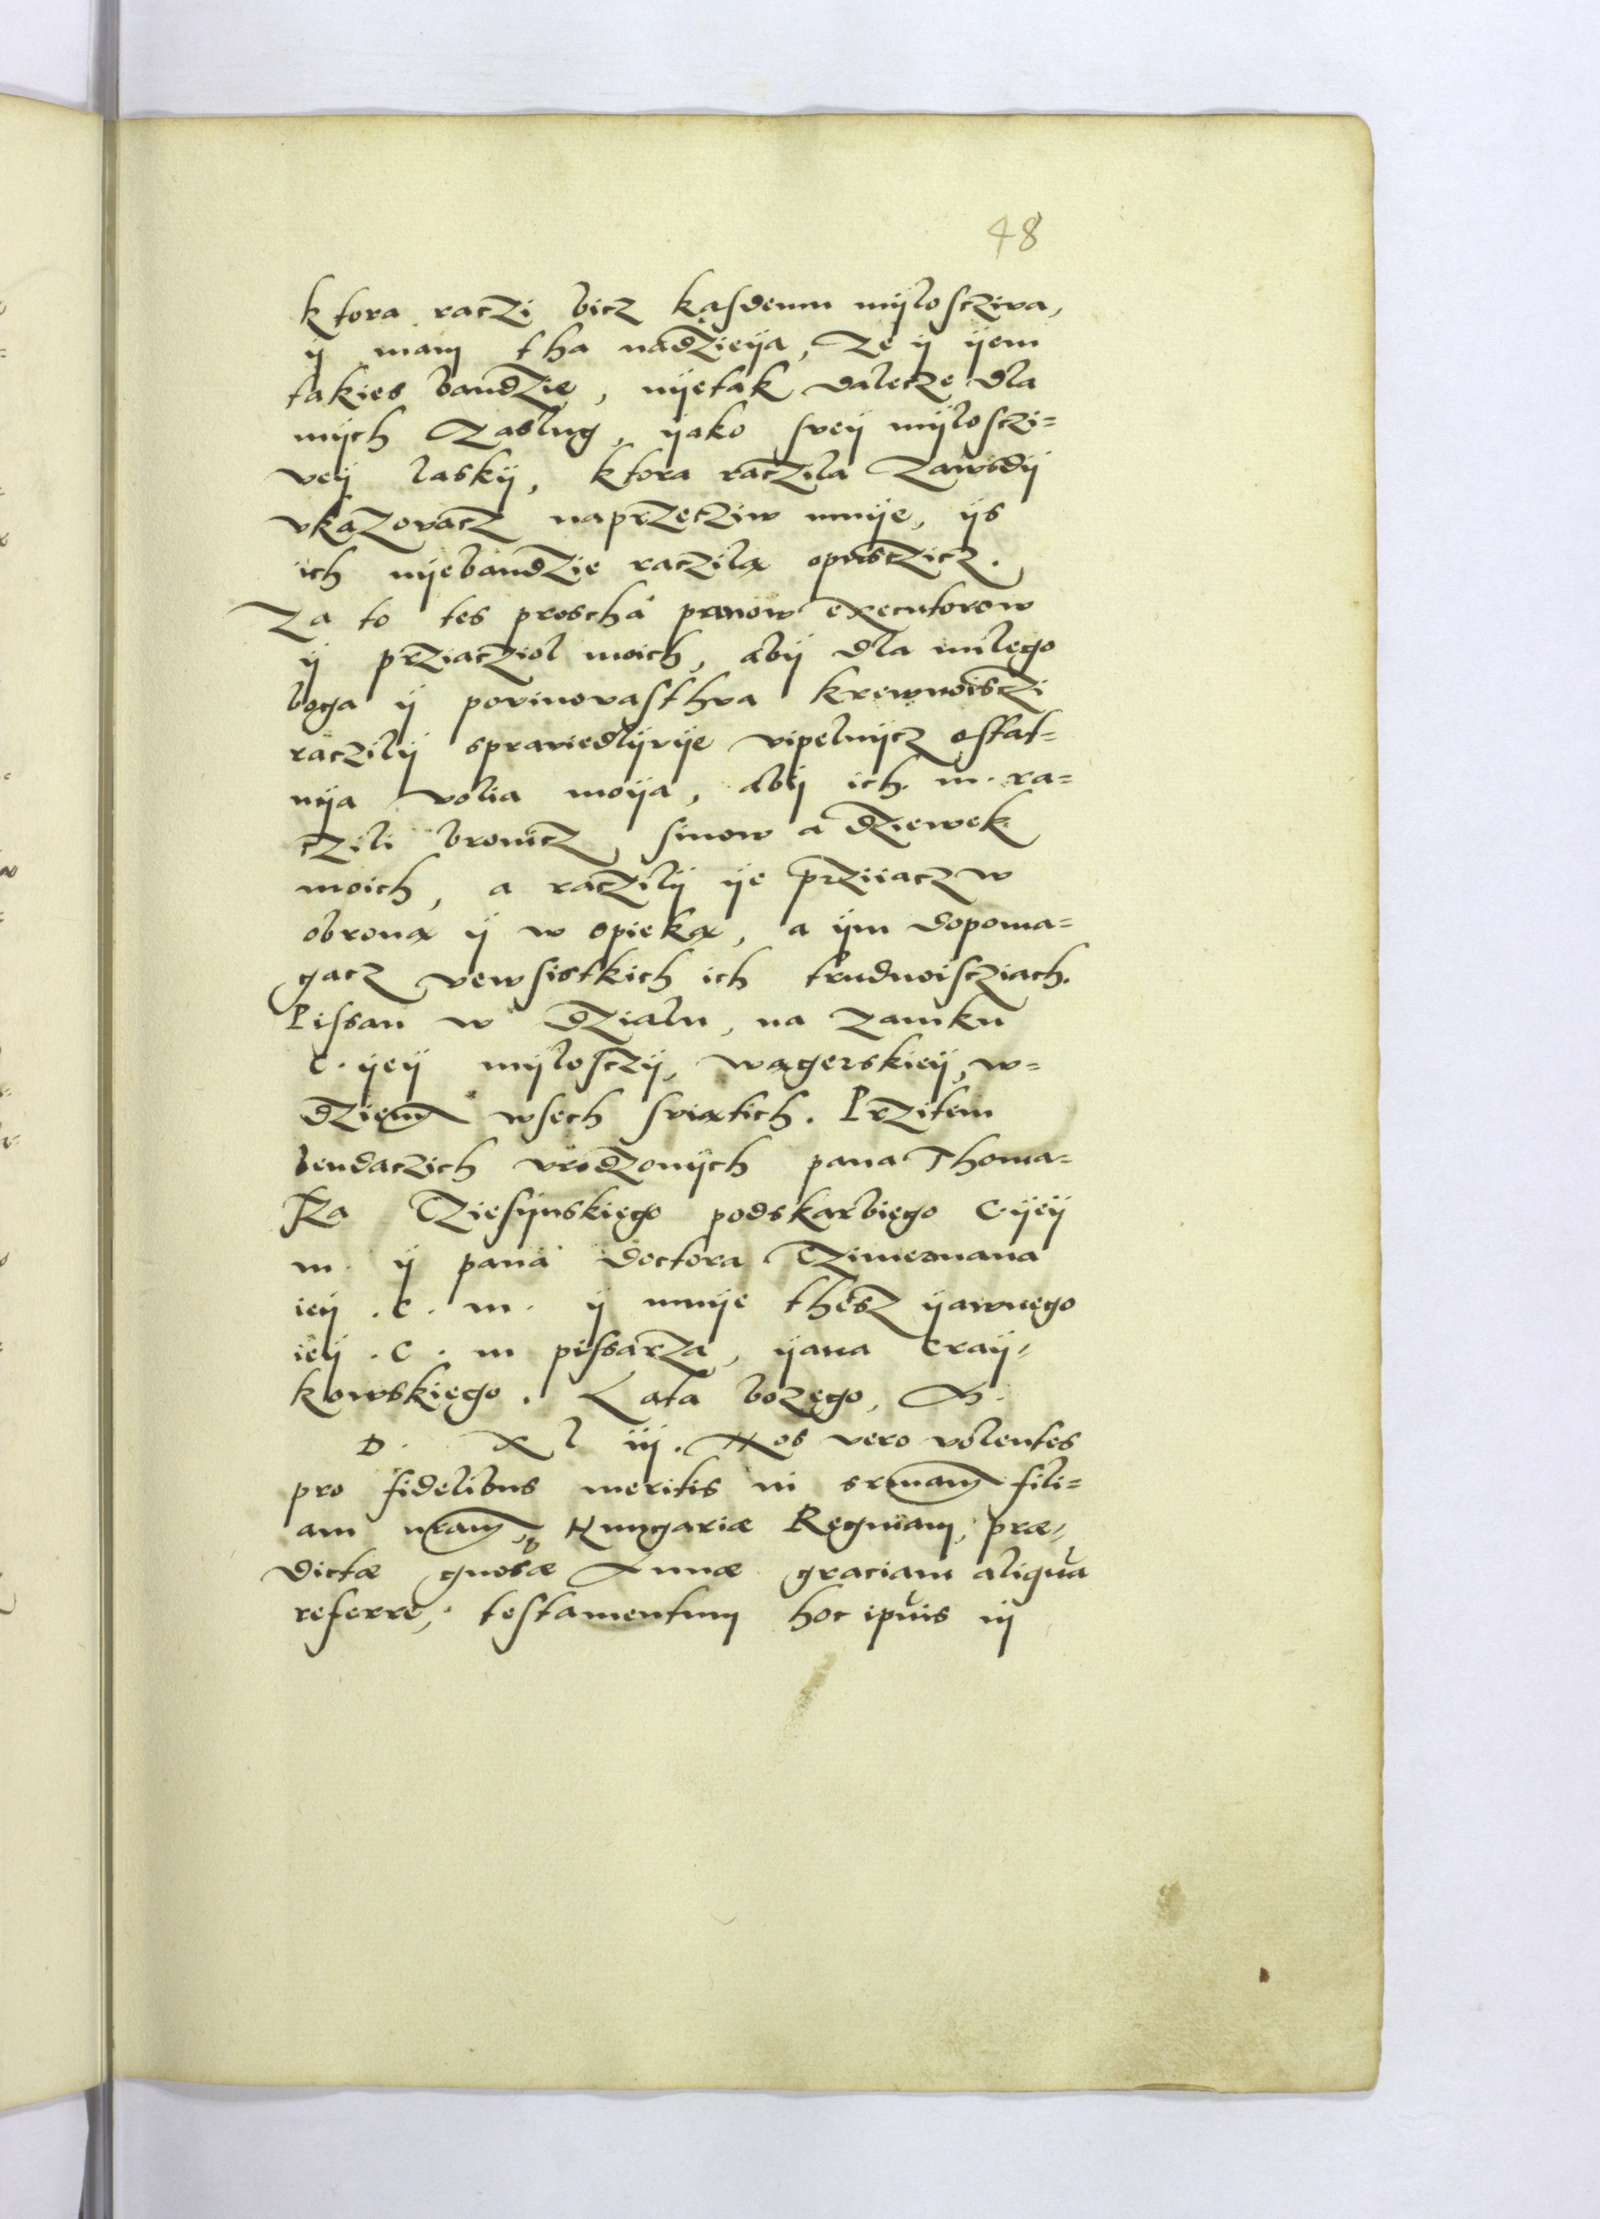 48
ktora raczi bicz kąsdemu mÿloscziva,
ÿ mam tha nadzieÿa, Ze ÿ ÿem
takies bandzie, nÿetak dalecze dla
mÿch Zaslug, ÿako sveÿ mÿlosczi=
veÿ laskÿ, ktora raczila Zawsdÿ
vkazovacz naprzecziw mnÿe, ÿs
ich nÿebandzie raczilą opusczicz.
Za to tes proscha panow executorow
ÿ prziacziol moich, abÿ dla milego
boga ÿ povinovasthva krewnoisczi
raczilÿ spraviedlÿvÿe vipelnÿcz ostat=
nÿa volia moÿa, abÿ ich m. ra=
czili bronicz sinow a dziewek
moich, a raczilÿ ÿe prziiacz w
obroną ÿ w opieką, a ÿm dopoma=
gacz vewsistkich ich trudnoiscziach.
Pissan w Dzialu, na Zamku
C. ÿeÿ mÿlosczÿ, wągerskieÿ, w=
dziem wsech sviątich. Przitem
bendaczich vrodzonÿch pana Thoma=
ka Cziesÿnskiego podskarbiego C. ÿeÿ
m. ÿ pana doctora Czimermana
ieÿ . C . m . ÿ mnÿe thesz ÿawnego
ieÿ . C . m pissarza, ÿana Craÿ=
kowskiego. Lata bozego, M.
D. Xl iij. Nos vero volentes
pro fidelibus meritis in srmam fili=
am nram, Hungariæ Reginam, præ=
dictæ gnosæ Annæ graciam aliqua
referre, testamentum hoc ipuis iij